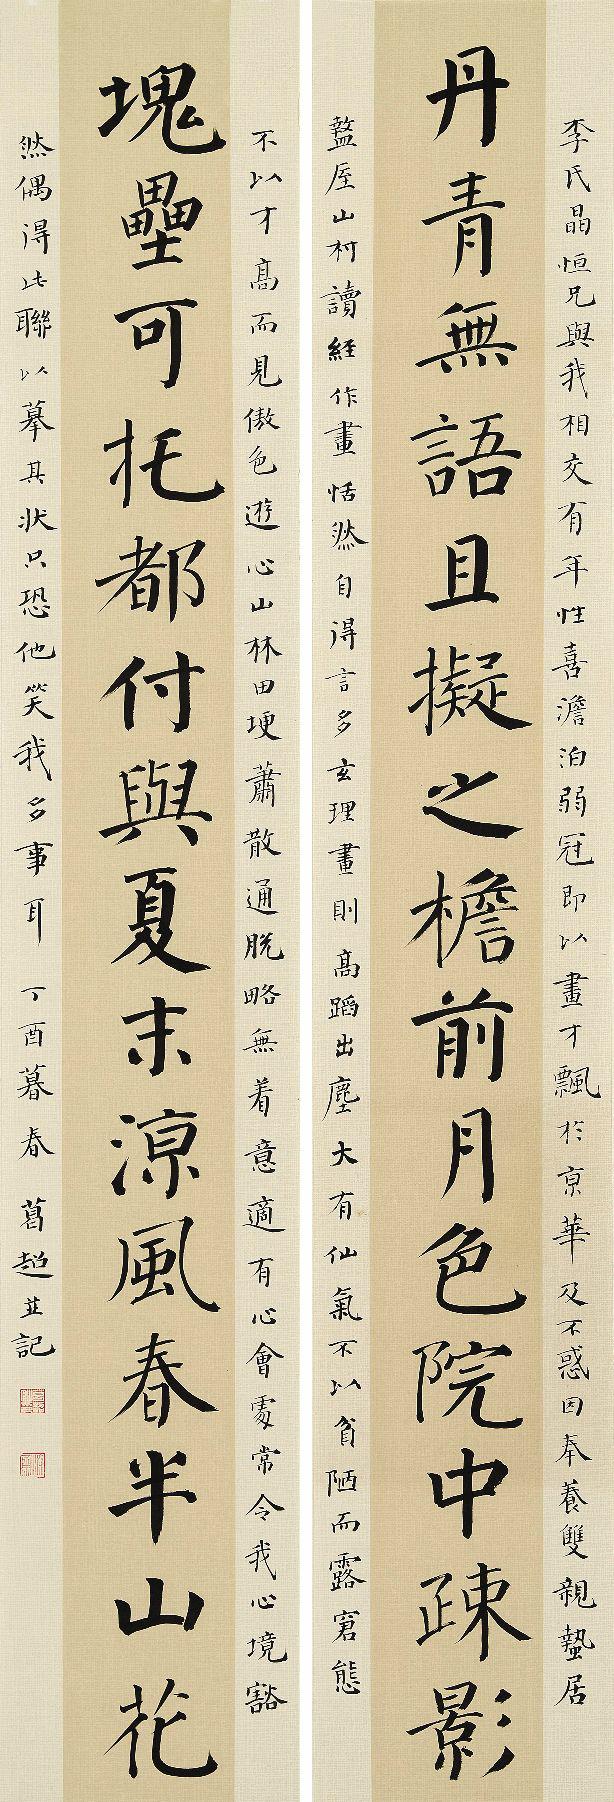 李氏晶恒兄與我相交有年性喜澹泊弱冠即以畫才飄於京華及不惑因奉養雙親蟄居
丹青無語且擬之檐前月色院中疎影
盩厔山村讀經作畫恬然自得言多玄理畫則高蹈出塵大有仙氣不以貧陋而露窘態
不以才高而見傲色遊心山林田埂蕭散通脱略無着意適有心會處常令我心境豁
塊壘可托都付與夏末涼風春半山花
然偶得此聯以摹其狀只恐他笑我多事耳 丁酉暮春 葛超並記